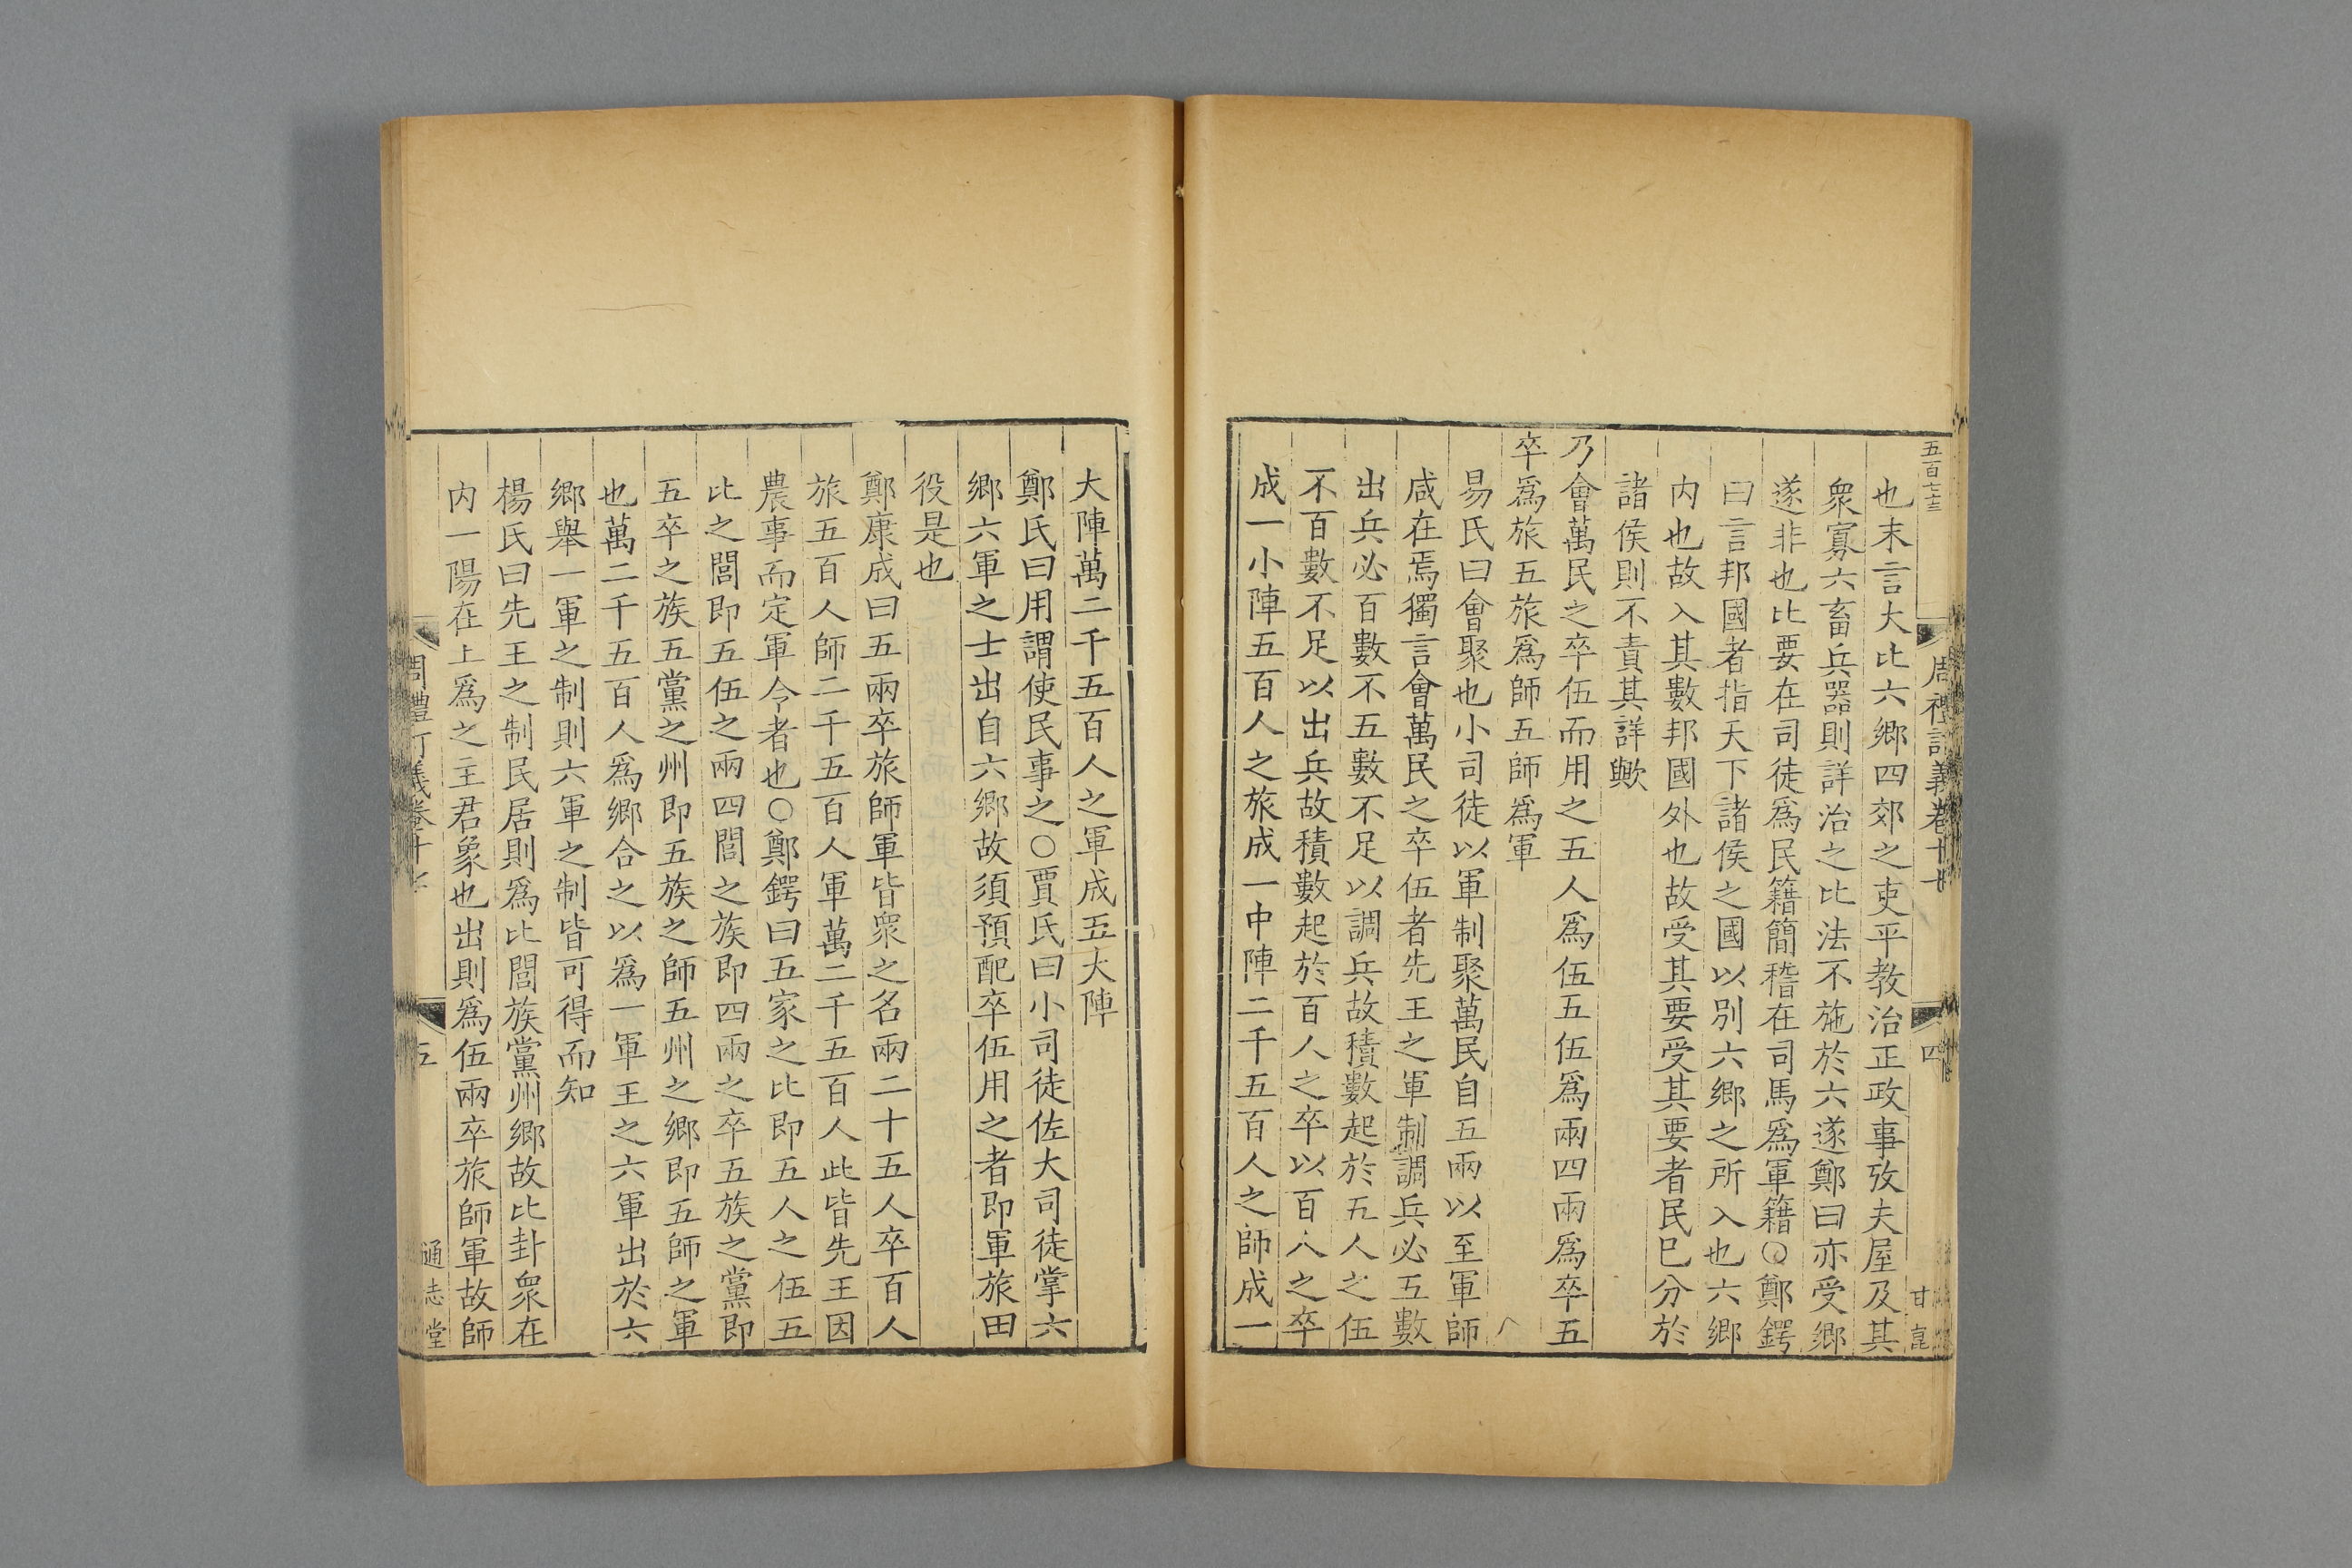 五百七十三
周禮訂義卷十七
四
甘亮
也末言大比六鄉四郊之吏平教治正政事攷夫屋及其
衆寡六畜兵器則詳治之比法不施於六遂鄭曰亦受鄉
遂非也比要在司徒爲民籍簡稽在司馬爲軍籍○鄭鍔
曰言邦國者指天下諸侯之國以別六鄉之所入也六鄉
内也故入其數邦國外也故受其要受其要者民已分於
諸侯則不責其詳歟
乃會萬民之卒伍而用之五人爲伍五伍爲兩四兩爲卒五
卒爲旅五旅爲師五師爲軍
易氏曰會聚也小司徒以軍制聚萬民自五兩以至軍師
咸在焉獨言會萬民之卒伍者先王之軍制調兵必五數
出兵必百數不五數不足以調兵故積數起於五人之伍
不百數不足以出兵故積數起於百人之卒以百人之卒
成一小陣五百人之旅成一中陣二千五百人之師成一
大陣萬二千五百人之軍成五大陣
鄭氏曰用謂使民事之○賈氏曰小司徒佐大司徒掌六
鄉六軍之士出自六鄉故須預配卒伍用之者即軍旅田
役是也
鄭康成曰五兩卒旅師軍皆衆之名兩二十五人卒百人
旅五百人師二千五百人軍萬二千五百人此皆先王因
農事而定軍令者也○鄭鍔曰五家之比即五人之伍五
比之閭即五伍之兩四閭之族即四兩之卒五族之黨即
五卒之旅五黨之州即五族之師五州之鄉即五師之軍
也萬二千五百人爲鄉合之以爲一軍王之六軍出於六
鄉舉一軍之制則六軍之制皆可得而知
楊氏曰先王之制民居則爲比閭族黨州鄉故比卦衆在
内一陽在上爲之主君象也出則爲伍兩卒旅師軍故師
周禮訂義卷十七
五
通志堂